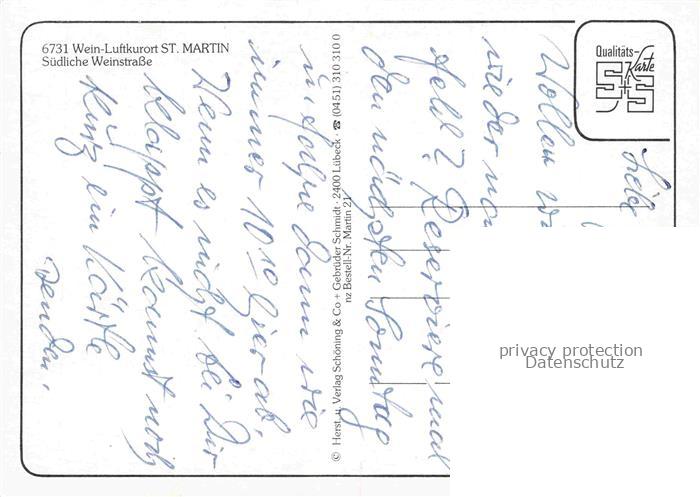 6731 Wein-Luftkurort ST. MARTIN
Südliche Weinstraße
Qualitäts-
Karte
S+S
© Herst. u. Verlag Schöning & Co + Gebrüder Schmidt · 2400 Lübeck · ☎ (0451) 310 310 0
nz Bestell-Nr. Martin 21
Liebe
Wollen wi
wieder na
feld? Reserviere mal
den nächsten Sonntag
u. fahre dann wie
immer 10¹⁰ hier ab.
Wenn es nicht bei Dir
klappt kannst noch
kurz ein Kärtle
senden.
privacy protection
Datenschutz